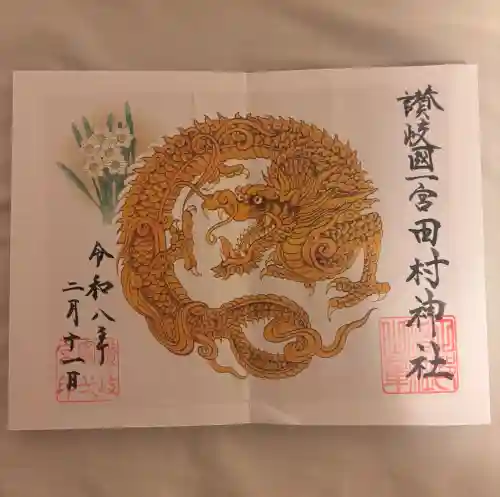 讃岐國一宮田村神社
令和八年
二月十一日